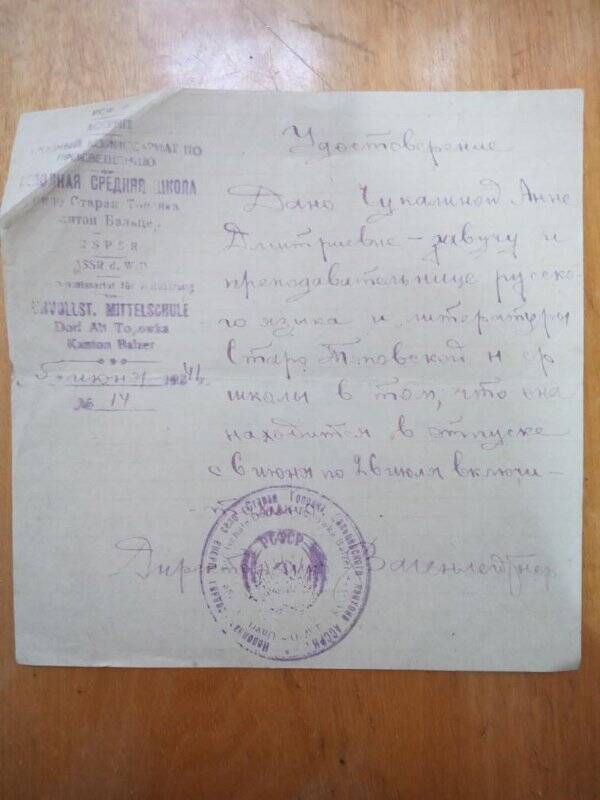 РСФСР
АССРНП
КОМИССАРИАТ ПО
ПРОСВЕЩЕНИЮ
СРЕДНЯЯ ШКОЛА
Старая Топовка
Кантон Бальцер
RSFSR
ASSR d. W. D.
UNVOLLST. MITTELSCHULE
Dorf Alt Topowka
Kanton Balzer
5 июня 1941 г.
№ 14
Удостоверение
Дано Чукалиной Анне
Дмитриевне - завучу и
преподавательнице русско-
го языка и литературы
Старо Топовской н ср
школы в том, что она
находится в отпуске
с 6 июня по 26 июля включи-
Директор
РСФСР